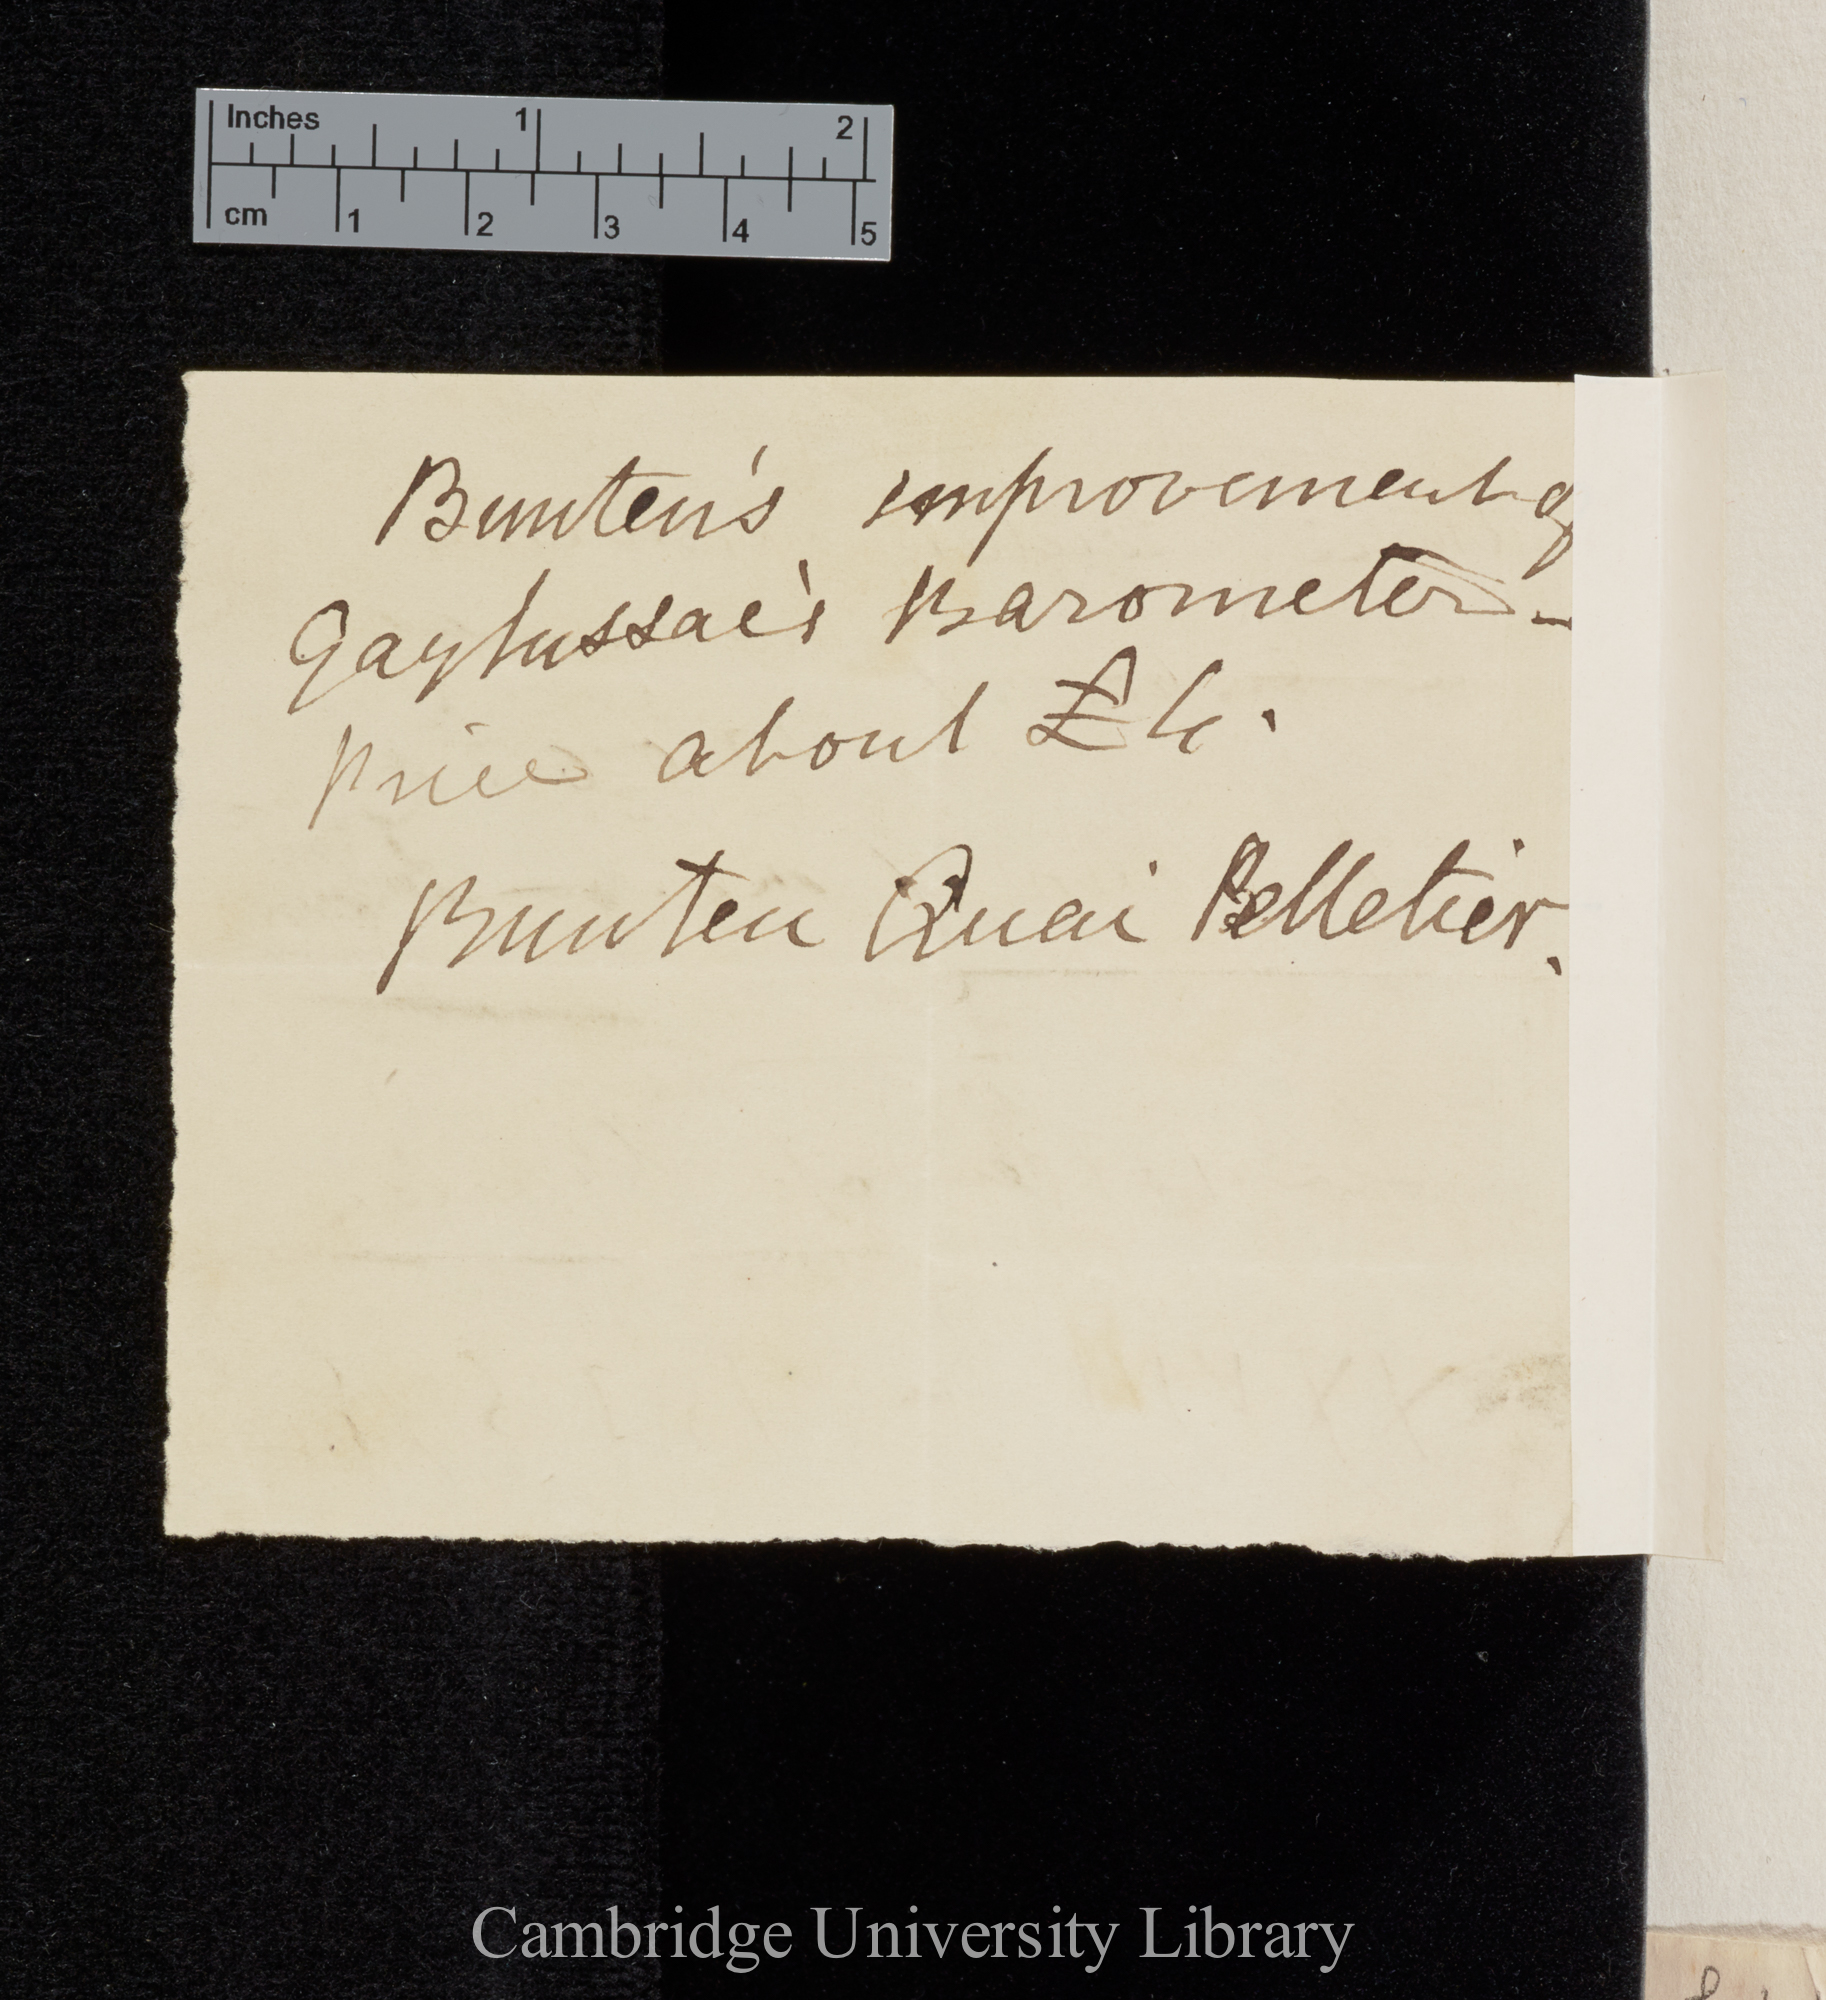 Inches 1 2
cm 1 2 3 4 5
Bunten's improvement of
Gaylussac's Barometer -
Price about £4.
Bunten Quai Pelletier.
Cambridge University Library